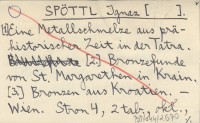 SPÖTTL Ignaz [ ].
[1] Eine Metallschmelze aus prä-
historischer Zeit in der Tatra.
[2] Bronzefunde
von St. Margarethen in Krain.
[3] Bronzen aus Kroatien. —
Wien. Stron 4, 2 tabl.,